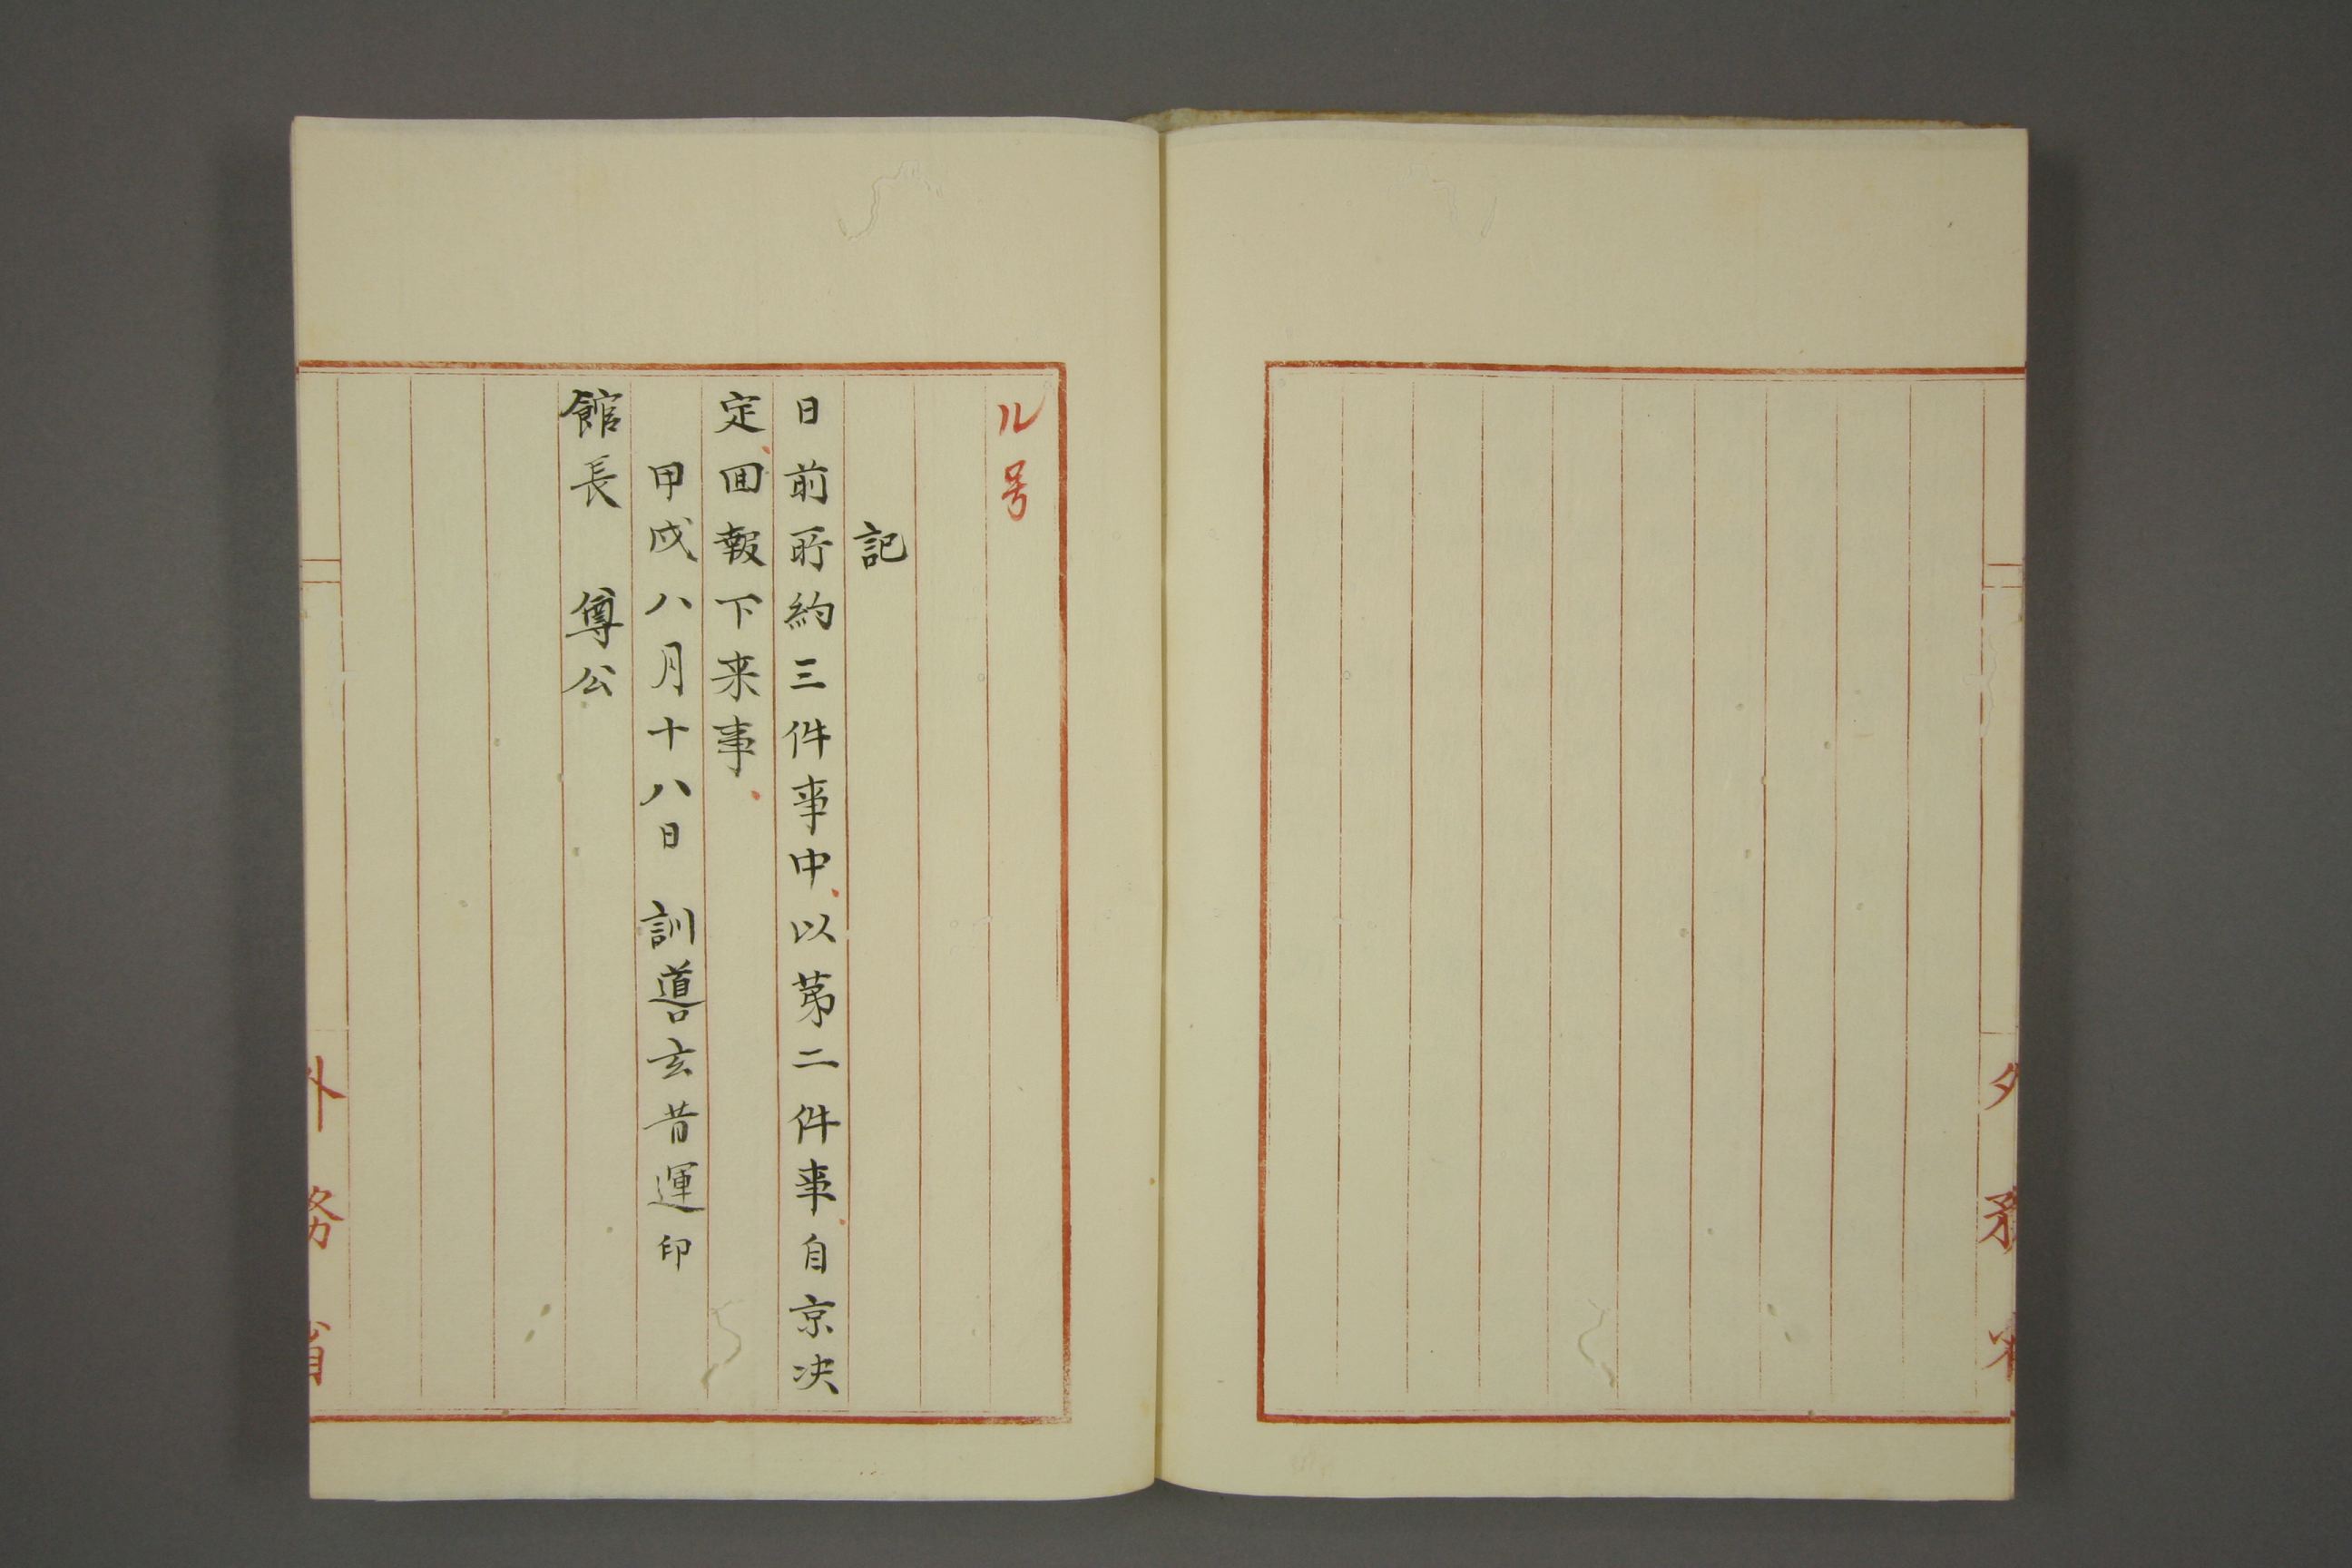 ル号
記
日前所約三件事中、以第二件事、自京决
定、回報下来事、
甲戌八月十八日 訓導玄昔運印
館長 尊公
外務省
外務省